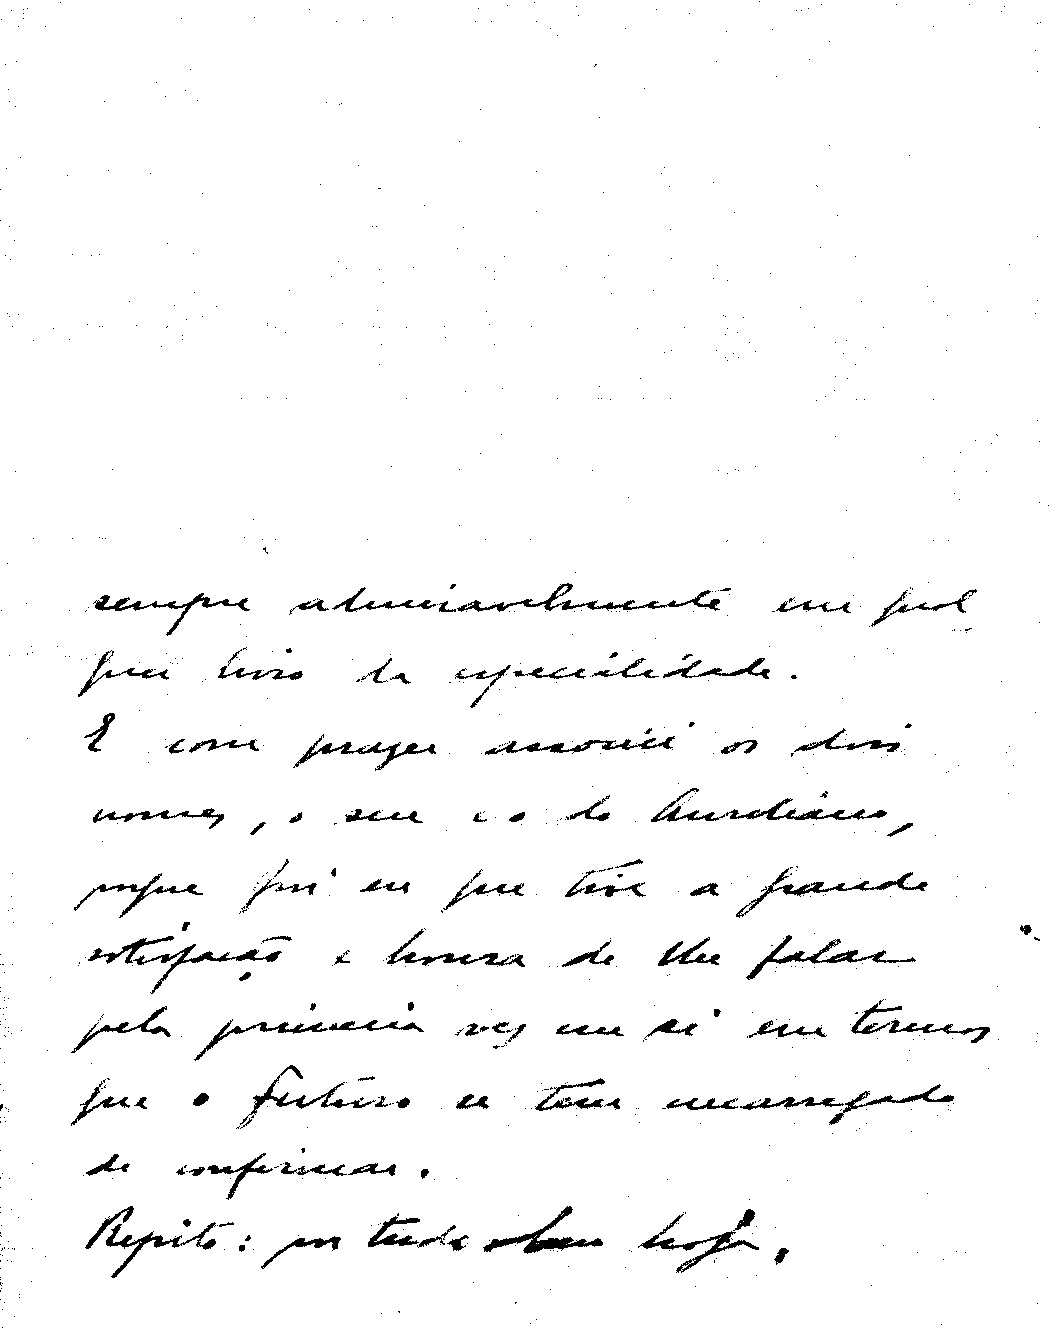 sempre admiravelmente em qual
quer livro da especialidade.
E com prazer associei os dois
nomes, o seu e o do Aureliano,
porque fui eu que tive a grande
satisfação e honra de lhe falar
pela primeira vez em si em termos
que o futuro se tem encarregado
de confirmar.
Repito: por tudo bem haja.